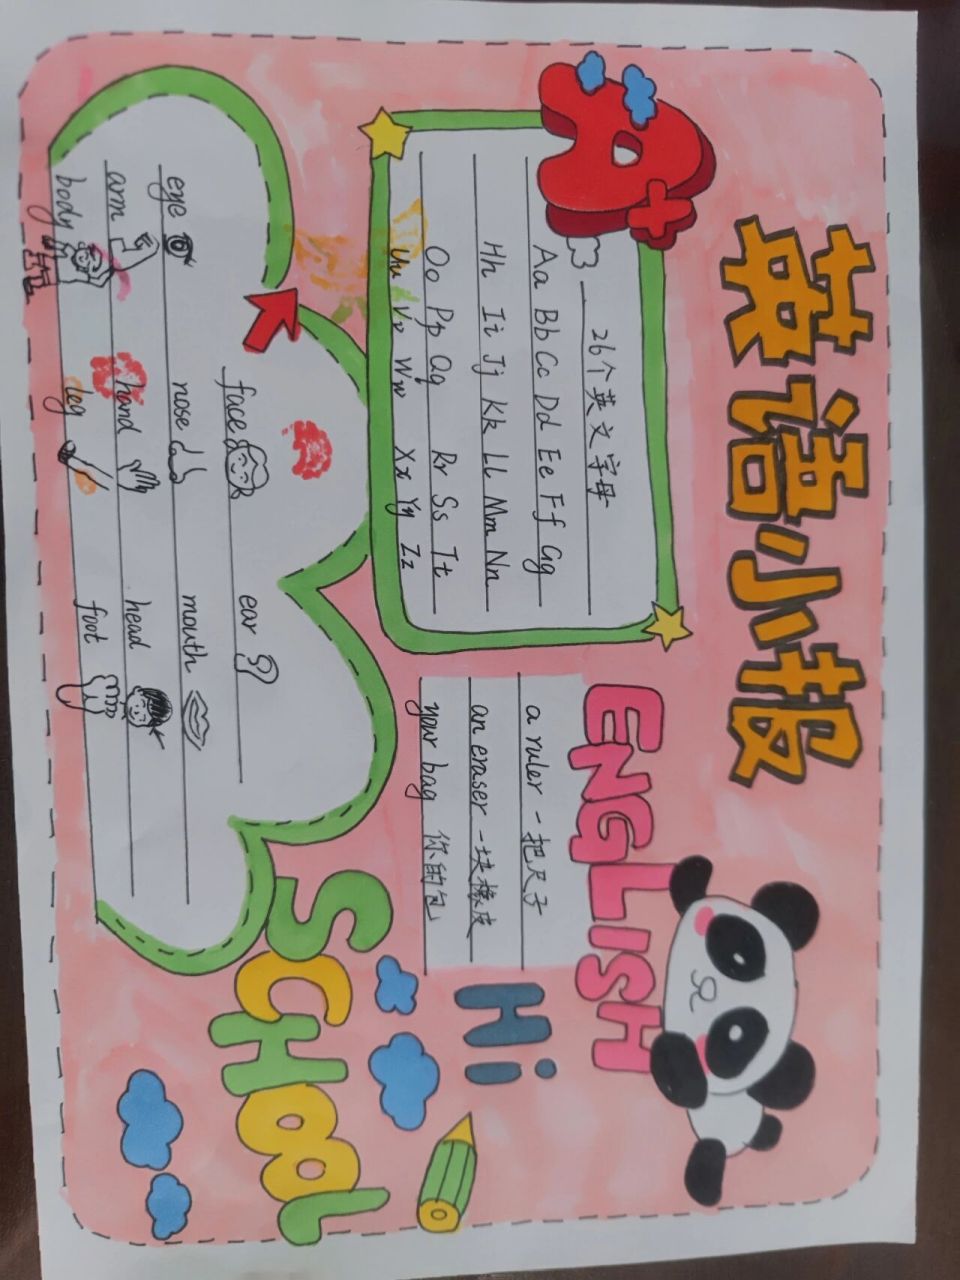 英语小报
A+
26个英文字母
Aa Bb Cc Dd Ee Ff Gg
Hh Ii Jj Kk Ll Mm Nn
Oo Pp Qq Rr Ss Tt
Uu Vv Ww Xx Yy Zz
ENGLISH
a ruler 一把尺子
an eraser 一块橡皮
your bag 你的包
Hi
face ear
eye nose mouth
arm hand head
body leg foot
SCHOOL